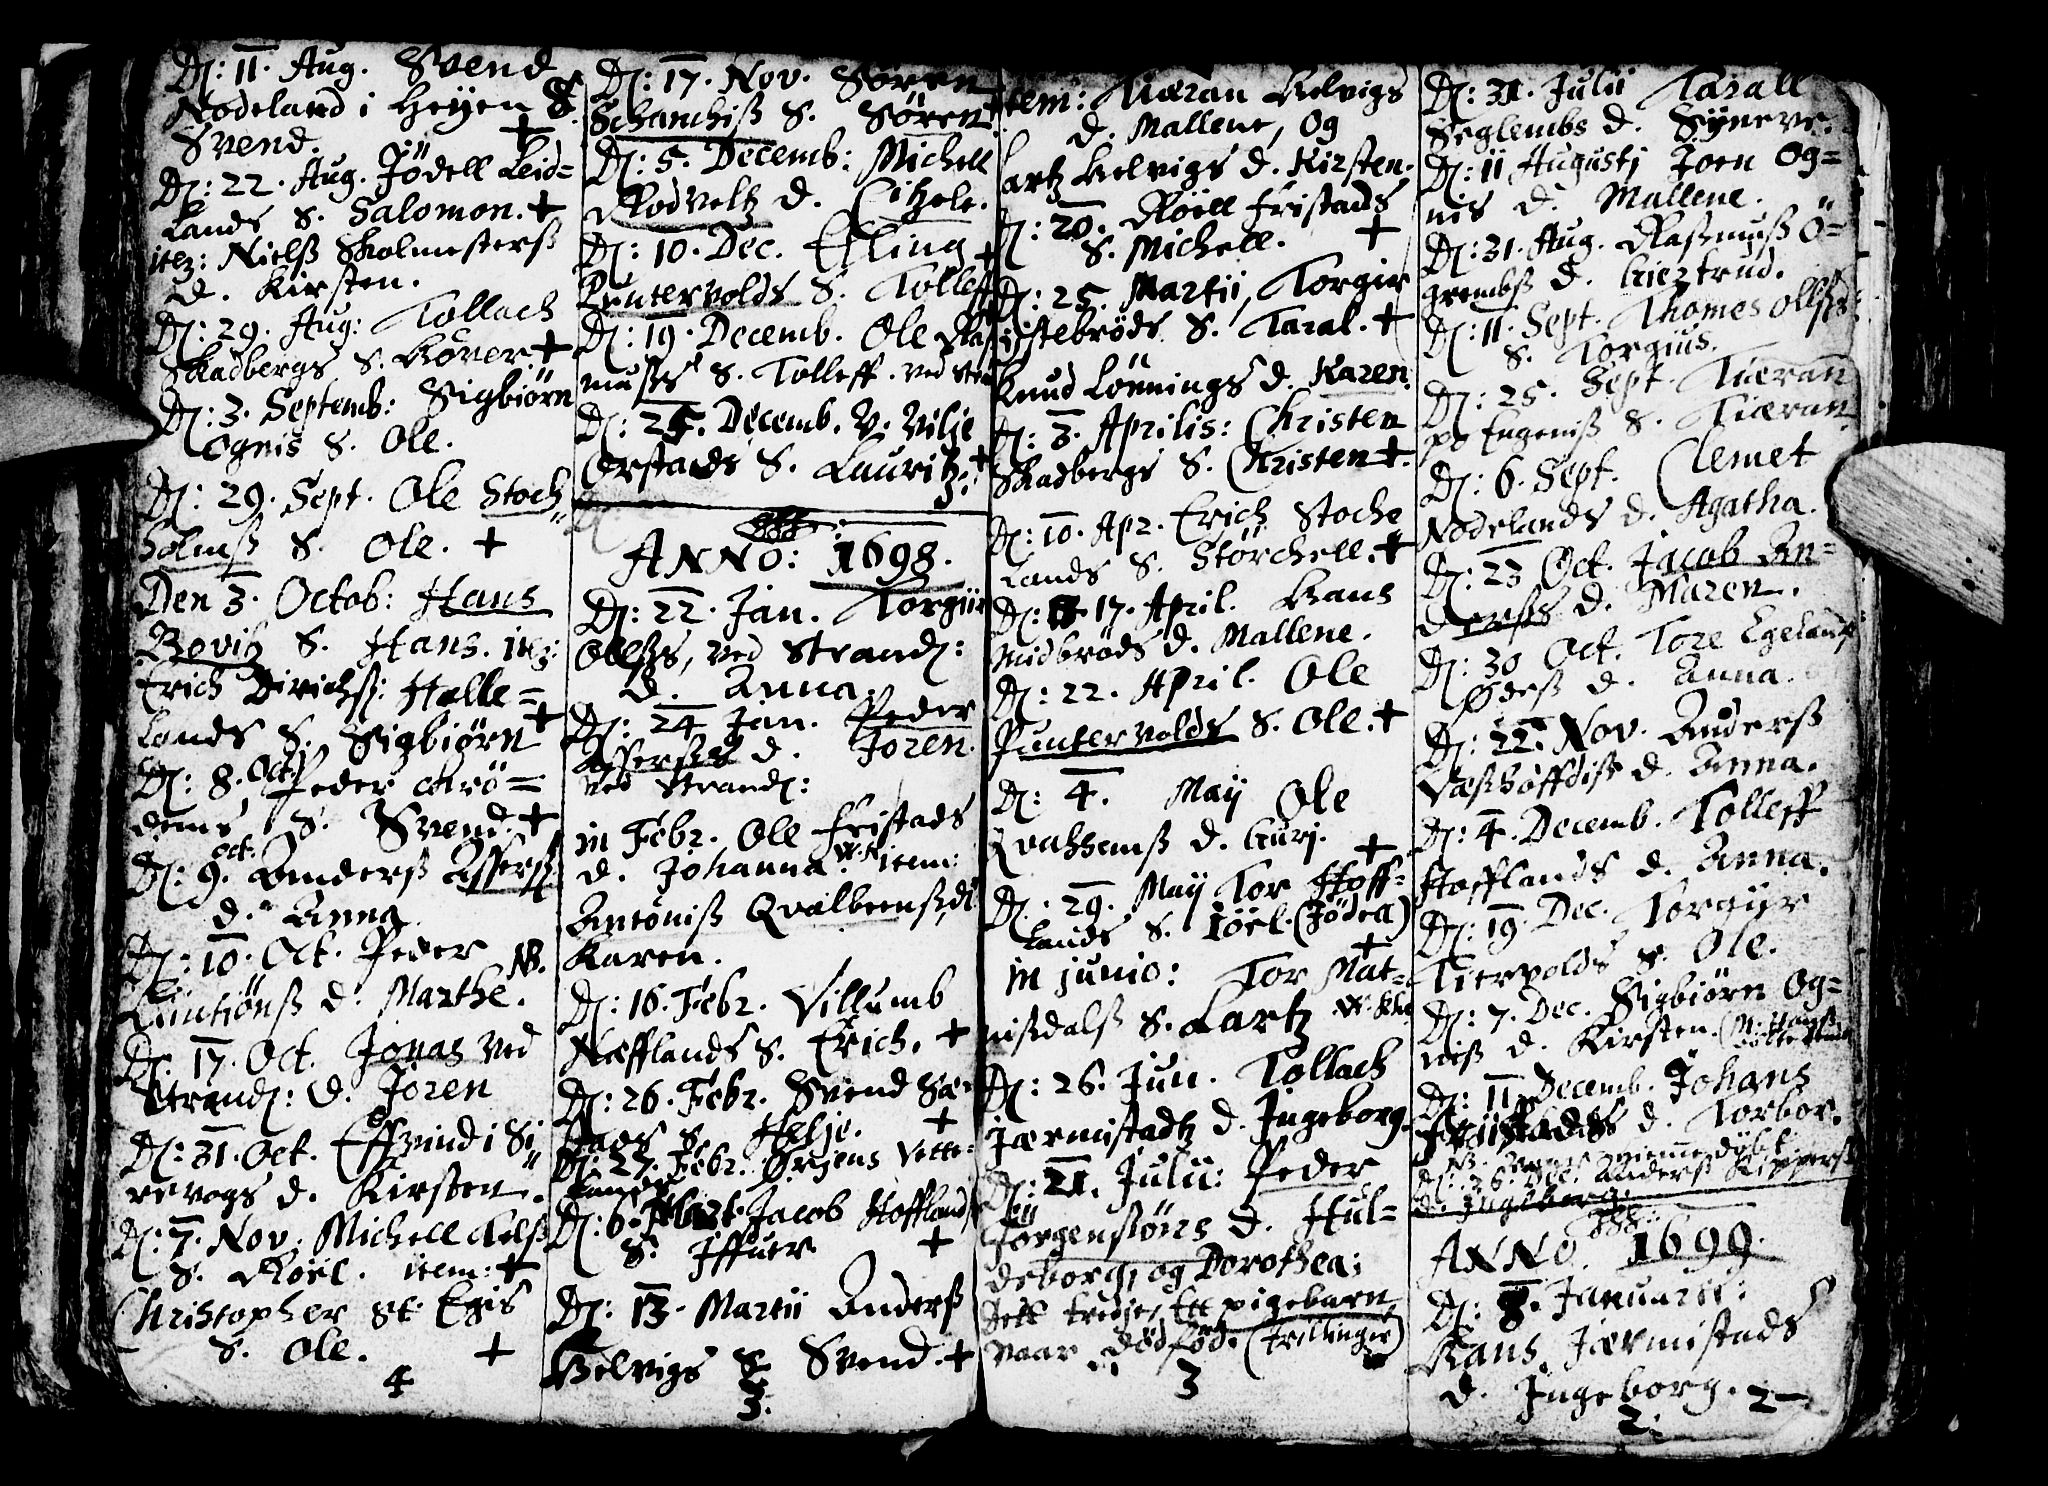 D: 11. Aug. Svend
Nodeland i Heyen S.
Svend. +
D: 22. Aug. Jödell Leid=
lands S. Salomon. +
item: Nielß Skolmesterß
d. Kirsten.
D: 29. Aug: Tollach
Skadbergs S. +
D: 3. Septemb: Sigbiörn
Ognis S. Ole.
D: 29. Sept. Ole Stoch
holmß S. Ole. +
Den 3. Octob: Hans
Bovitz S. Hans. item:
Erich Dirichß: Helle=
lands S. Sigbiörn +
D: 8. Oct. Peder Årö=
dems S. Svend. +
D: 9. Oct. Anderß Asserß
d. Anna
D: 10. Oct. Peder
d. Marthe. NB.
D: 17. Oct. Jonas ved
Strand: d. Joren
D: 31. Oct. Effvind i Si
revogs d. Kirsten.
D: 7. Nov. Michell
S. Roiel. item: +
Christopher St. Egis
S. Ole. +
4
D: 17. Nov. Sören
Schanchiß S. Sören
D: 5. Decemb: Michell
Rodveltz d. Citzele.
D: 10. Dec. Elling
Puntervolds S. Tolleff +
D: 19. Decemb. Ole Ras
mußs S. Tolleff. ved
D: 25. Decemb. V. Vilje
Orstads S. Lauritz. +
3.
ANNO: 1698.
D: 22. Jan. Torgiir
Olleßs, ved Strand:
d. Anna.
D: 24 Jan. Peder
Asserßs d. Joren.
ved Strand:
in Febr. Ole Fristads
d. Johanna. item:
Antoniß Qvalbeenß, d.
Karen.
D: 16. Febr. Villumb
Næfflands S. Erich. +
D: 26. Febr. Svend Sæ
S. Helje. +
D: 27. Febr. Örjens Vette
D: 6. Mart. Jacob Hofflands
S. Iffuer +
D: 13. Martii Anderß
Helvigs S. Svend. +
3.
Item: Tiæran Helvigs
d. Mallene, og
Lartz Helvigs d. Kirsten.
D: 20. Röiell Fristads
S. Michell. +
D: 25. Martii, Torgir
istebröds S. Taral. +
Knud Lönnings d. Karen.
D: 3. Aprilis: Christen
Skadbergs S. Christen +.
D: 10. Apr. Erich Stoche
lands S. Störchell. +
D: 17. April. Hans
Midbröds d. Mallene.
D: 22. April. Ole
Puntervolds S. Ole. +
D: 4. May Ole
Qvaßhemß d. Gurj.
D: 29. May Tor Hoff= +
lands S. Iöel. (Jödea)
in junio: Tor Mat= +
nißdalß S. Lartz
D: 26. Jun. Tollach
Jærmistadtz d. Ingeborg.
D: 21. Julii: Peder
Jorgensiöns d. Hul=
deborg, og Dorothea;
Dett tredje, Ett pigebarn
vaar dödföd. (trillinger)
3
D: 31. Julii Tarall
Seglembs d. Syneve.
D: 11 Augustj Joen Og=
nis d. Mallene.
D: 31. Aug. Raßmuß Ö=
grembß d. Gieztrud.
D: 11. Sept. Thomes Ollßs:
S. Torgius.
D: 25. Sept. Tiæran
på Engeniß S. Tiæran.
D: 6. Sept. Clemet
Nodelands d. Agatha.
D: 23 Oct. Jacob An=
derßs d. Maren.
D: 30 Oct. Tore Egelands
Ödeß d. Anna.
D: 22. Nov. Anderß
d. Anna.
D: 4. Decemb. Tolleff
Hofflands d. Anna.
D: 19. Dec. Torgiir
Tiervolds S. Ole.
D: 7. Dec. Sigbiörn Og=
niß d. Kirsten.
D: 11. Decemb. Johans
Friistads d. Torbor.
NB. hiemmedöbt
D: 26. Dec. Anderß Kippers
d. Ingeborg.
ANNO. 1699.
D: 8. Januarii:
Hans Jærmistads
d. Ingeborg. 2
2.